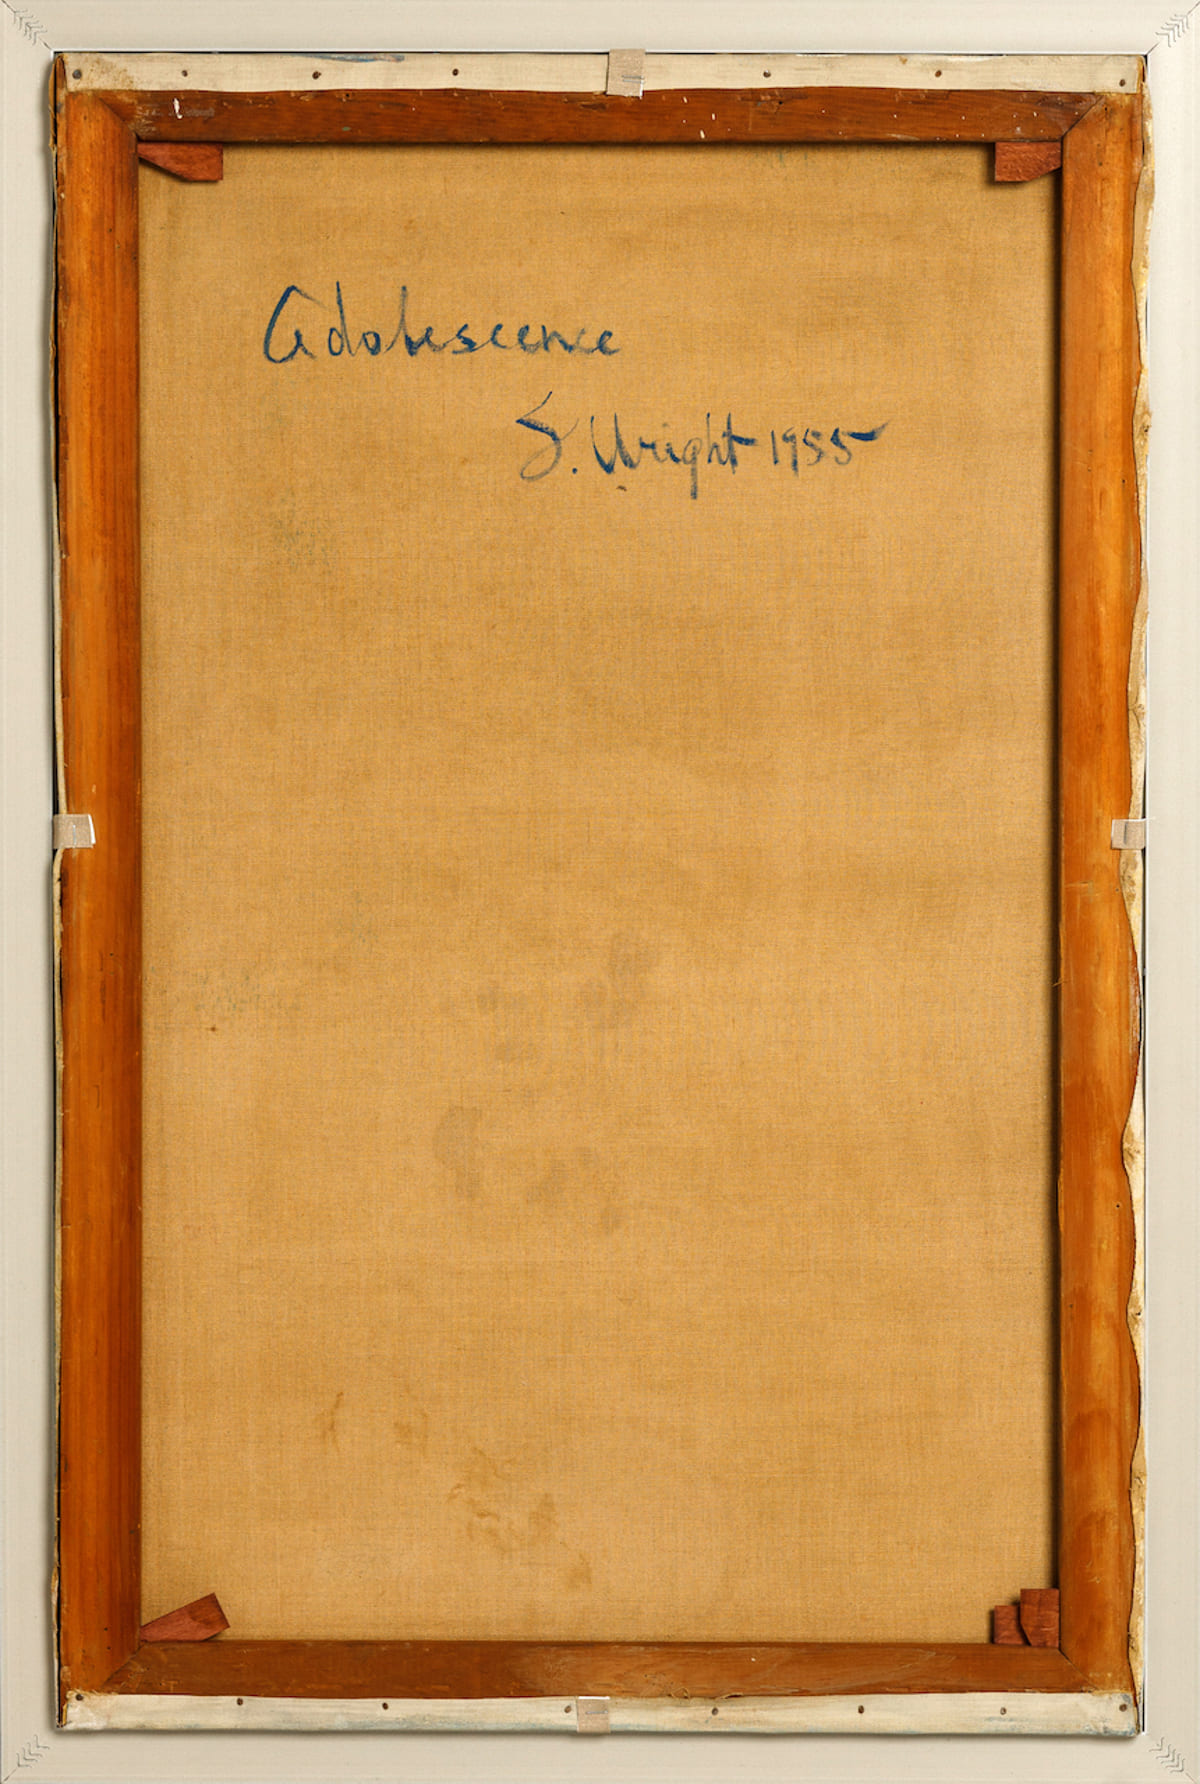 Adolescence
S. Wright 1955